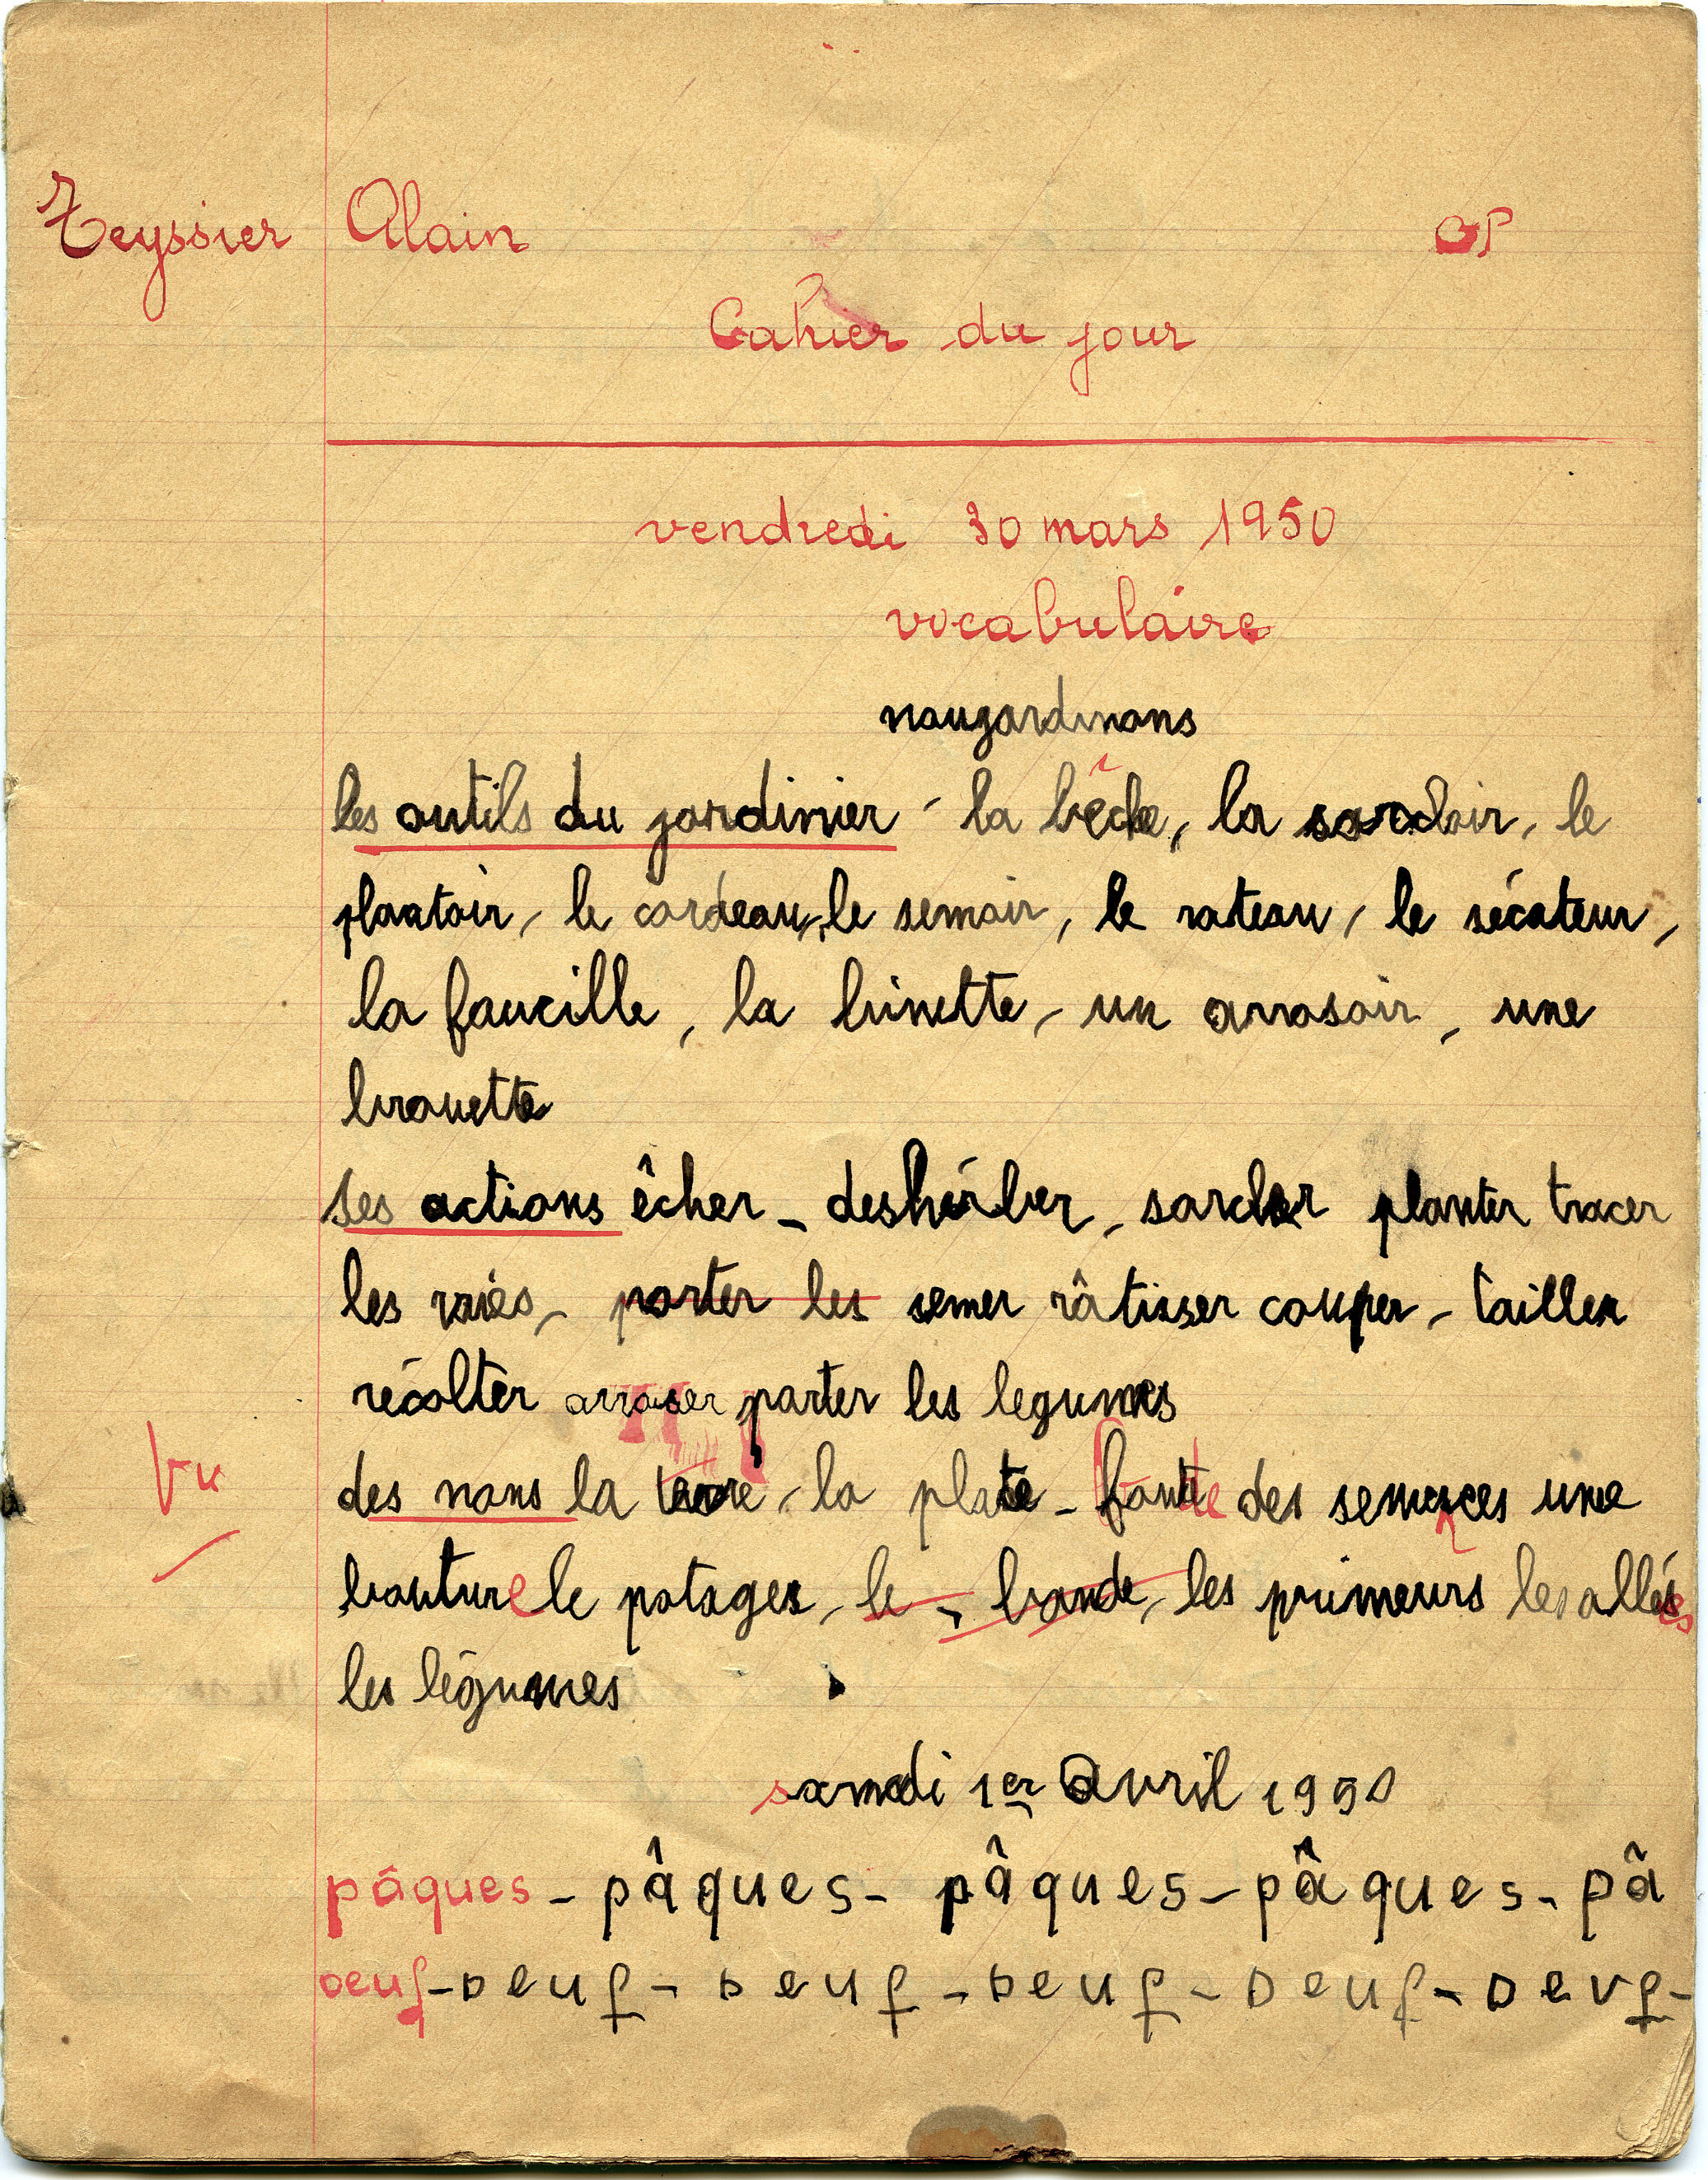 Teyssier Alain CP
Cahier du jour
vendredi 30 mars 1950
vocabulaire
nougardinons
les outils du jardinier - la bêche, la sarcloir, le
plantoir, le cordeau, le semoir, le rateau, le sécateur,
la faucille, la binette, un arrosoir, une
brouette
Ses actions êcher - deshérber, sarcler planter tracer
les raiés, porter les semer râtisser couper, tailler
récolter arroser porter les legumes
Vu
des noms la terre, la plate - bande des semences une
bouture le potager, le, bande, les primeurs les allées
les légumes
samedi 1er Avril 1950
pâques - pâques - pâques - pâques - pâ
oeuf - oeuf - oeuf - oeuf - oeuf - oeuf -